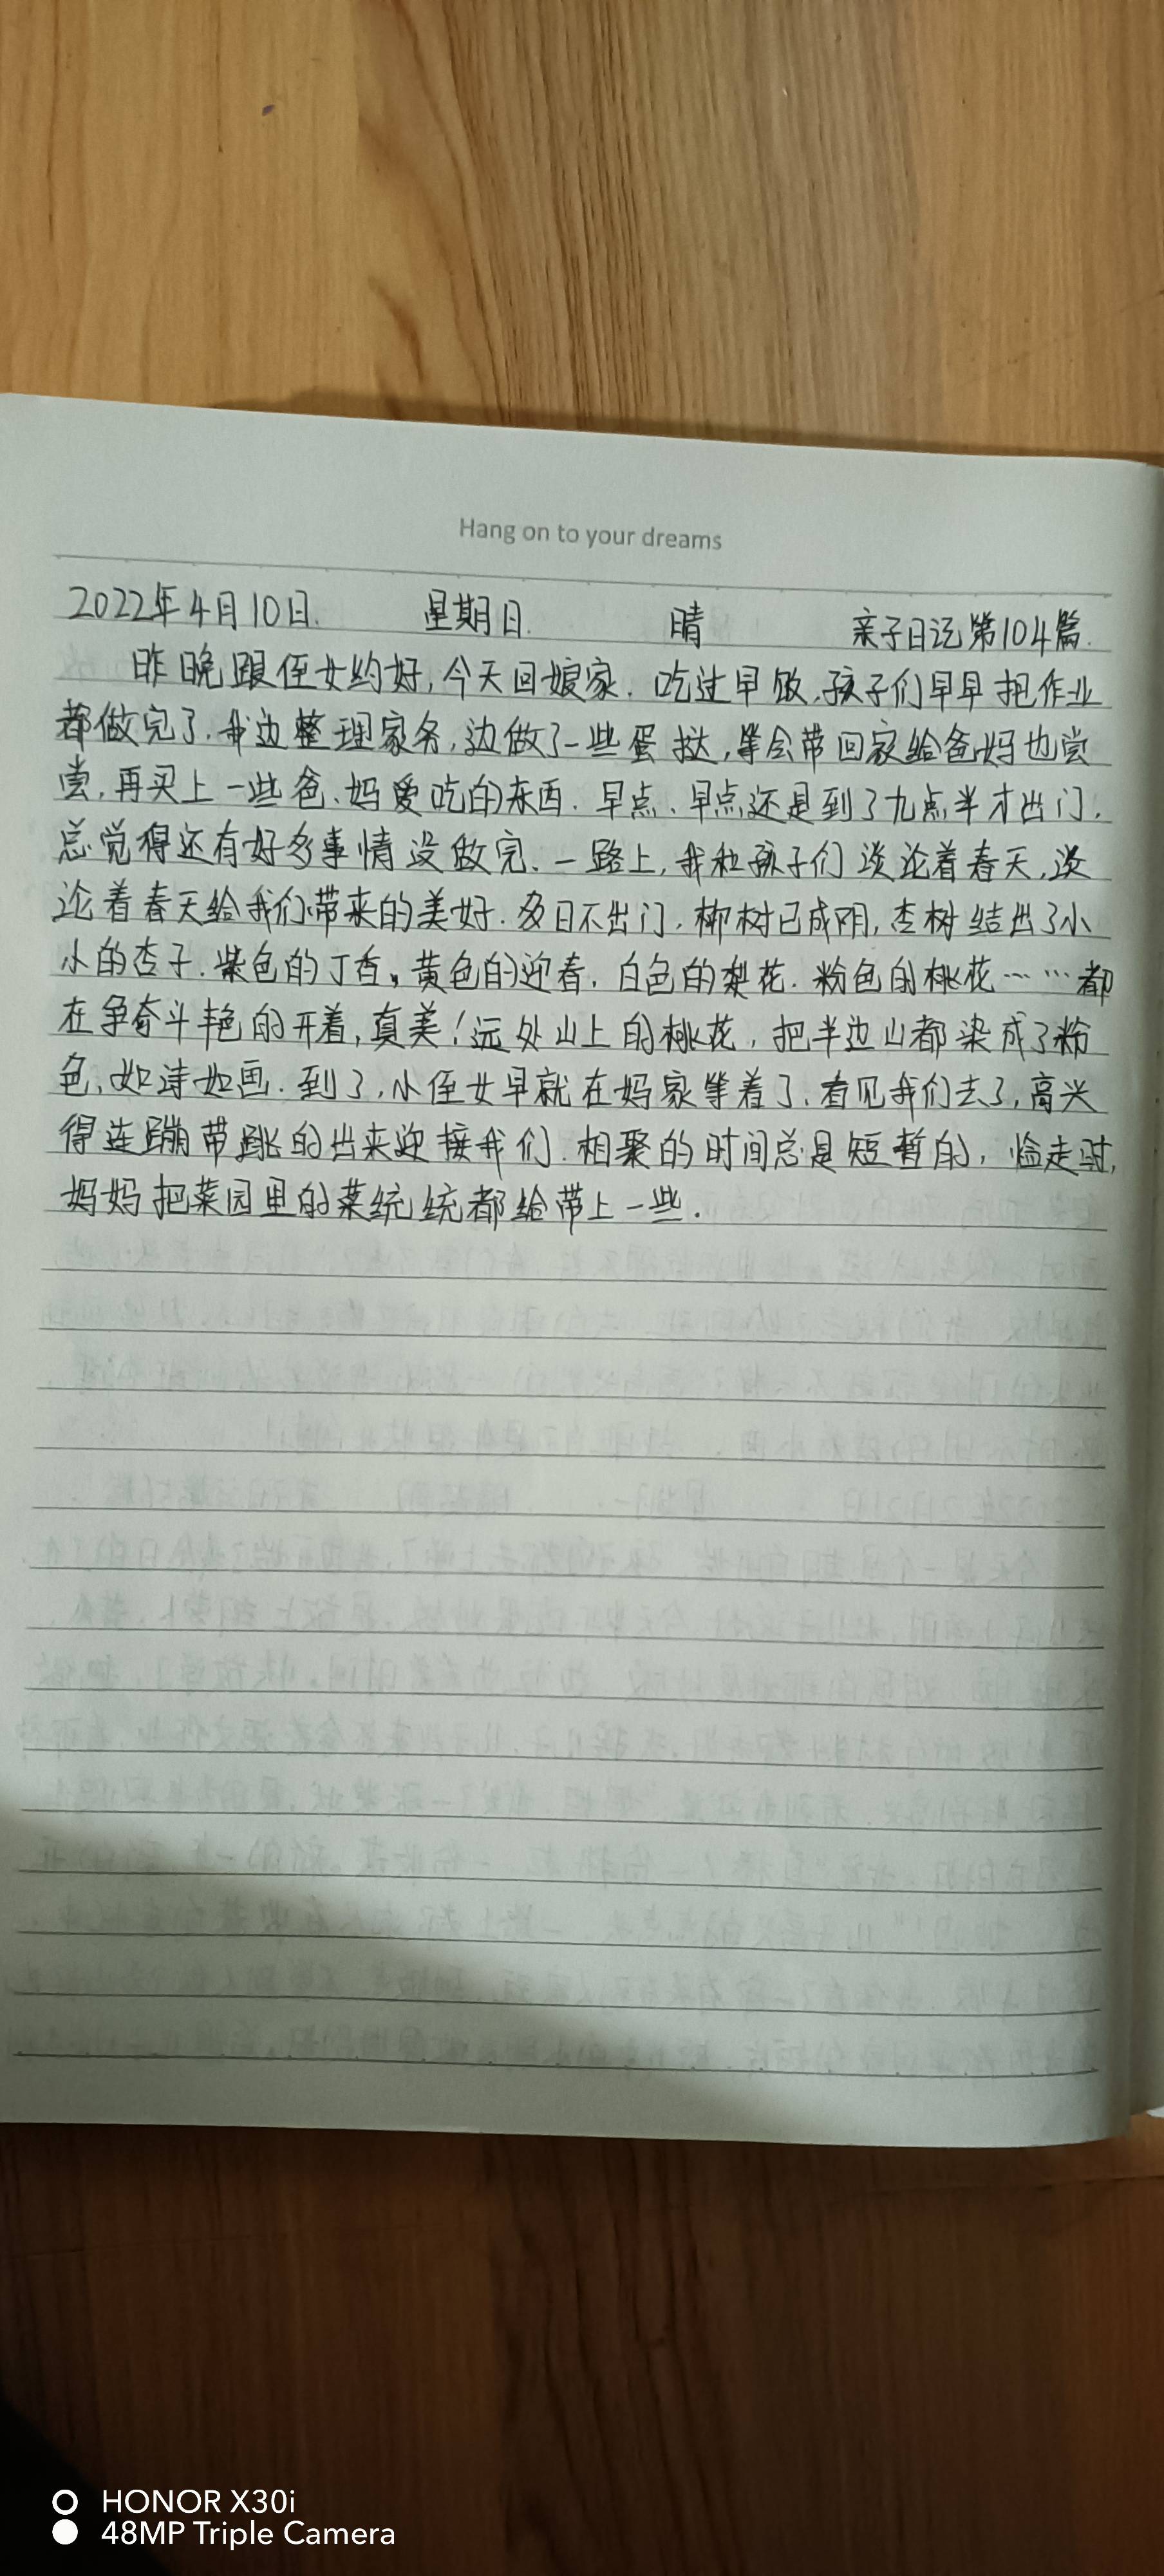 Hang on to your dreams
2022年4月10日. 星期日. 晴 亲子日记第104篇.
昨晚跟侄女约好,今天回娘家. 吃过早饭,孩子们早早把作业
都做完了.我边整理家务,边做了一些蛋挞,等会带回家给爸妈也尝
尝,再买上一些爸、妈爱吃的东西. 早点、早点还是到了九点半才出门.
总觉得还有好多事情没做完、一路上,我和孩子们谈论着春天,谈
论着春天给我们带来的美好. 多日不出门,柳树已成阴,杏树结出了小
小的杏子.紫色的丁香,黄色的迎春,白色的梨花.粉色的桃花……都
在争奋斗艳的开着,真美!远处山上的桃花,把半边山都染成了粉
色,如诗如画.到了,小侄女早就在妈家等着了.看见我们去了,高兴
得连蹦带跳的出来迎接我们.相聚的时间总是短暂的,临走时,
妈妈把菜园里的菜统统都给带上一些.
HONOR X30i
48MP Triple Camera